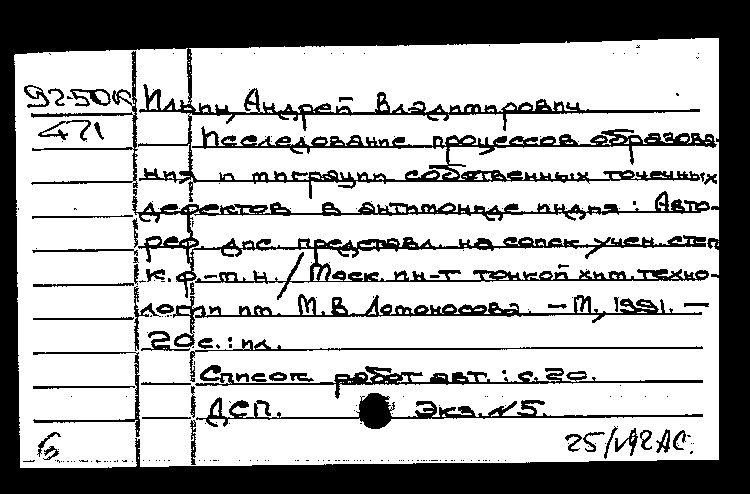 92-50к Ильин, Андрей Владимирович.
471 Исследование процессов образова-
ния и миграции собственных точечных
дефектов в антимониде индия : Авто-
реф. дис. представл. на соиск. учен. степ.
к.ф.-м.н. / Моск. ин-т тонкой хим. техно-
логии им. М.В. Ломоносова. — М., 1991. —
20 с. : ил.
Список работ авт. : с. 20.
ДСП. Экз. № 5.
б 25/